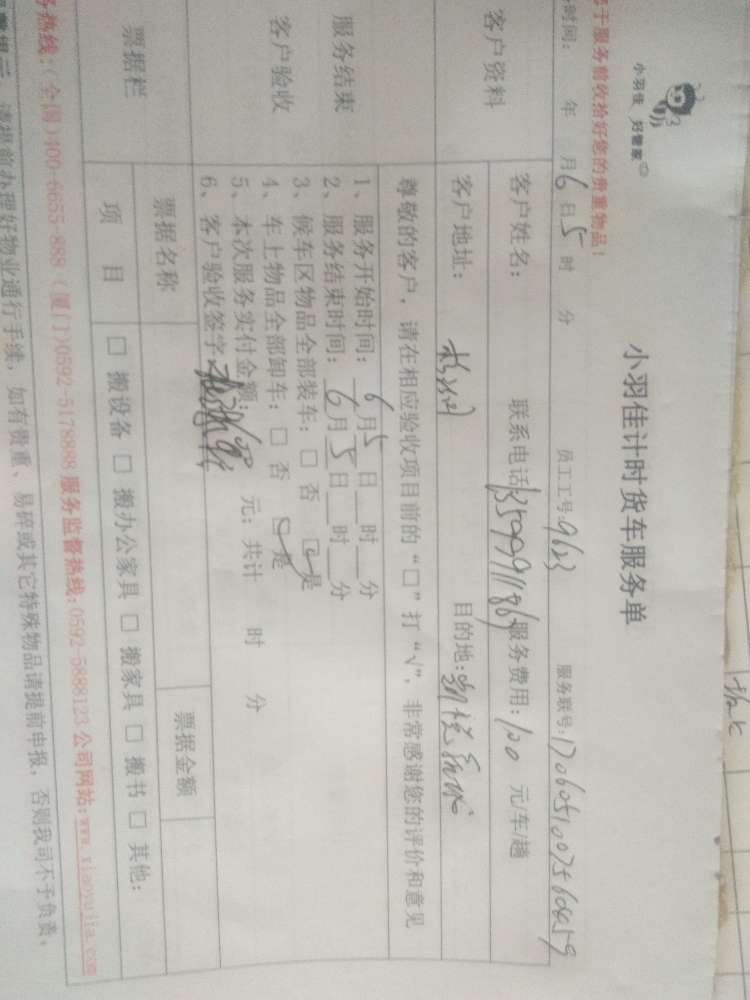 小羽佳 好管家
小羽佳计时货车服务单
于服务前收拾好您的贵重物品!
时间: 年 月6日5时 分 员工工号:9623 服务联号:
客户资料
客户姓名: 联系电话 服务费用:100 元/车/趟
客户地址: 目的地:
尊敬的客户,请在相应验收项目前的“□”打“√”,非常感谢您的评价和意见
服务结束
客户验收
1、服务开始时间:6月5日 时 分
2、服务结束时间:6月5日 时 分
3、候车区物品全部装车:□ 否 □ 是
4、车上物品全部卸车:□ 否 □ 是
5、本次服务实付金额: 元; 共计 时 分
6、客户验收签字:
票据栏
票据名称 票据金额
项 目 □ 搬设备 □ 搬办公家具 □ 搬家具 □ 搬书 □ 其他:
务热线:(全国)400-6655-888 (厦门)0592-5178888 服务监督热线:0592-5888123 公司网站:www.xiaoyujia.com
提示:请提前办理好物业通行手续,如有贵重、易碎或其它特殊物品请提前申报,否则我司不予负责。